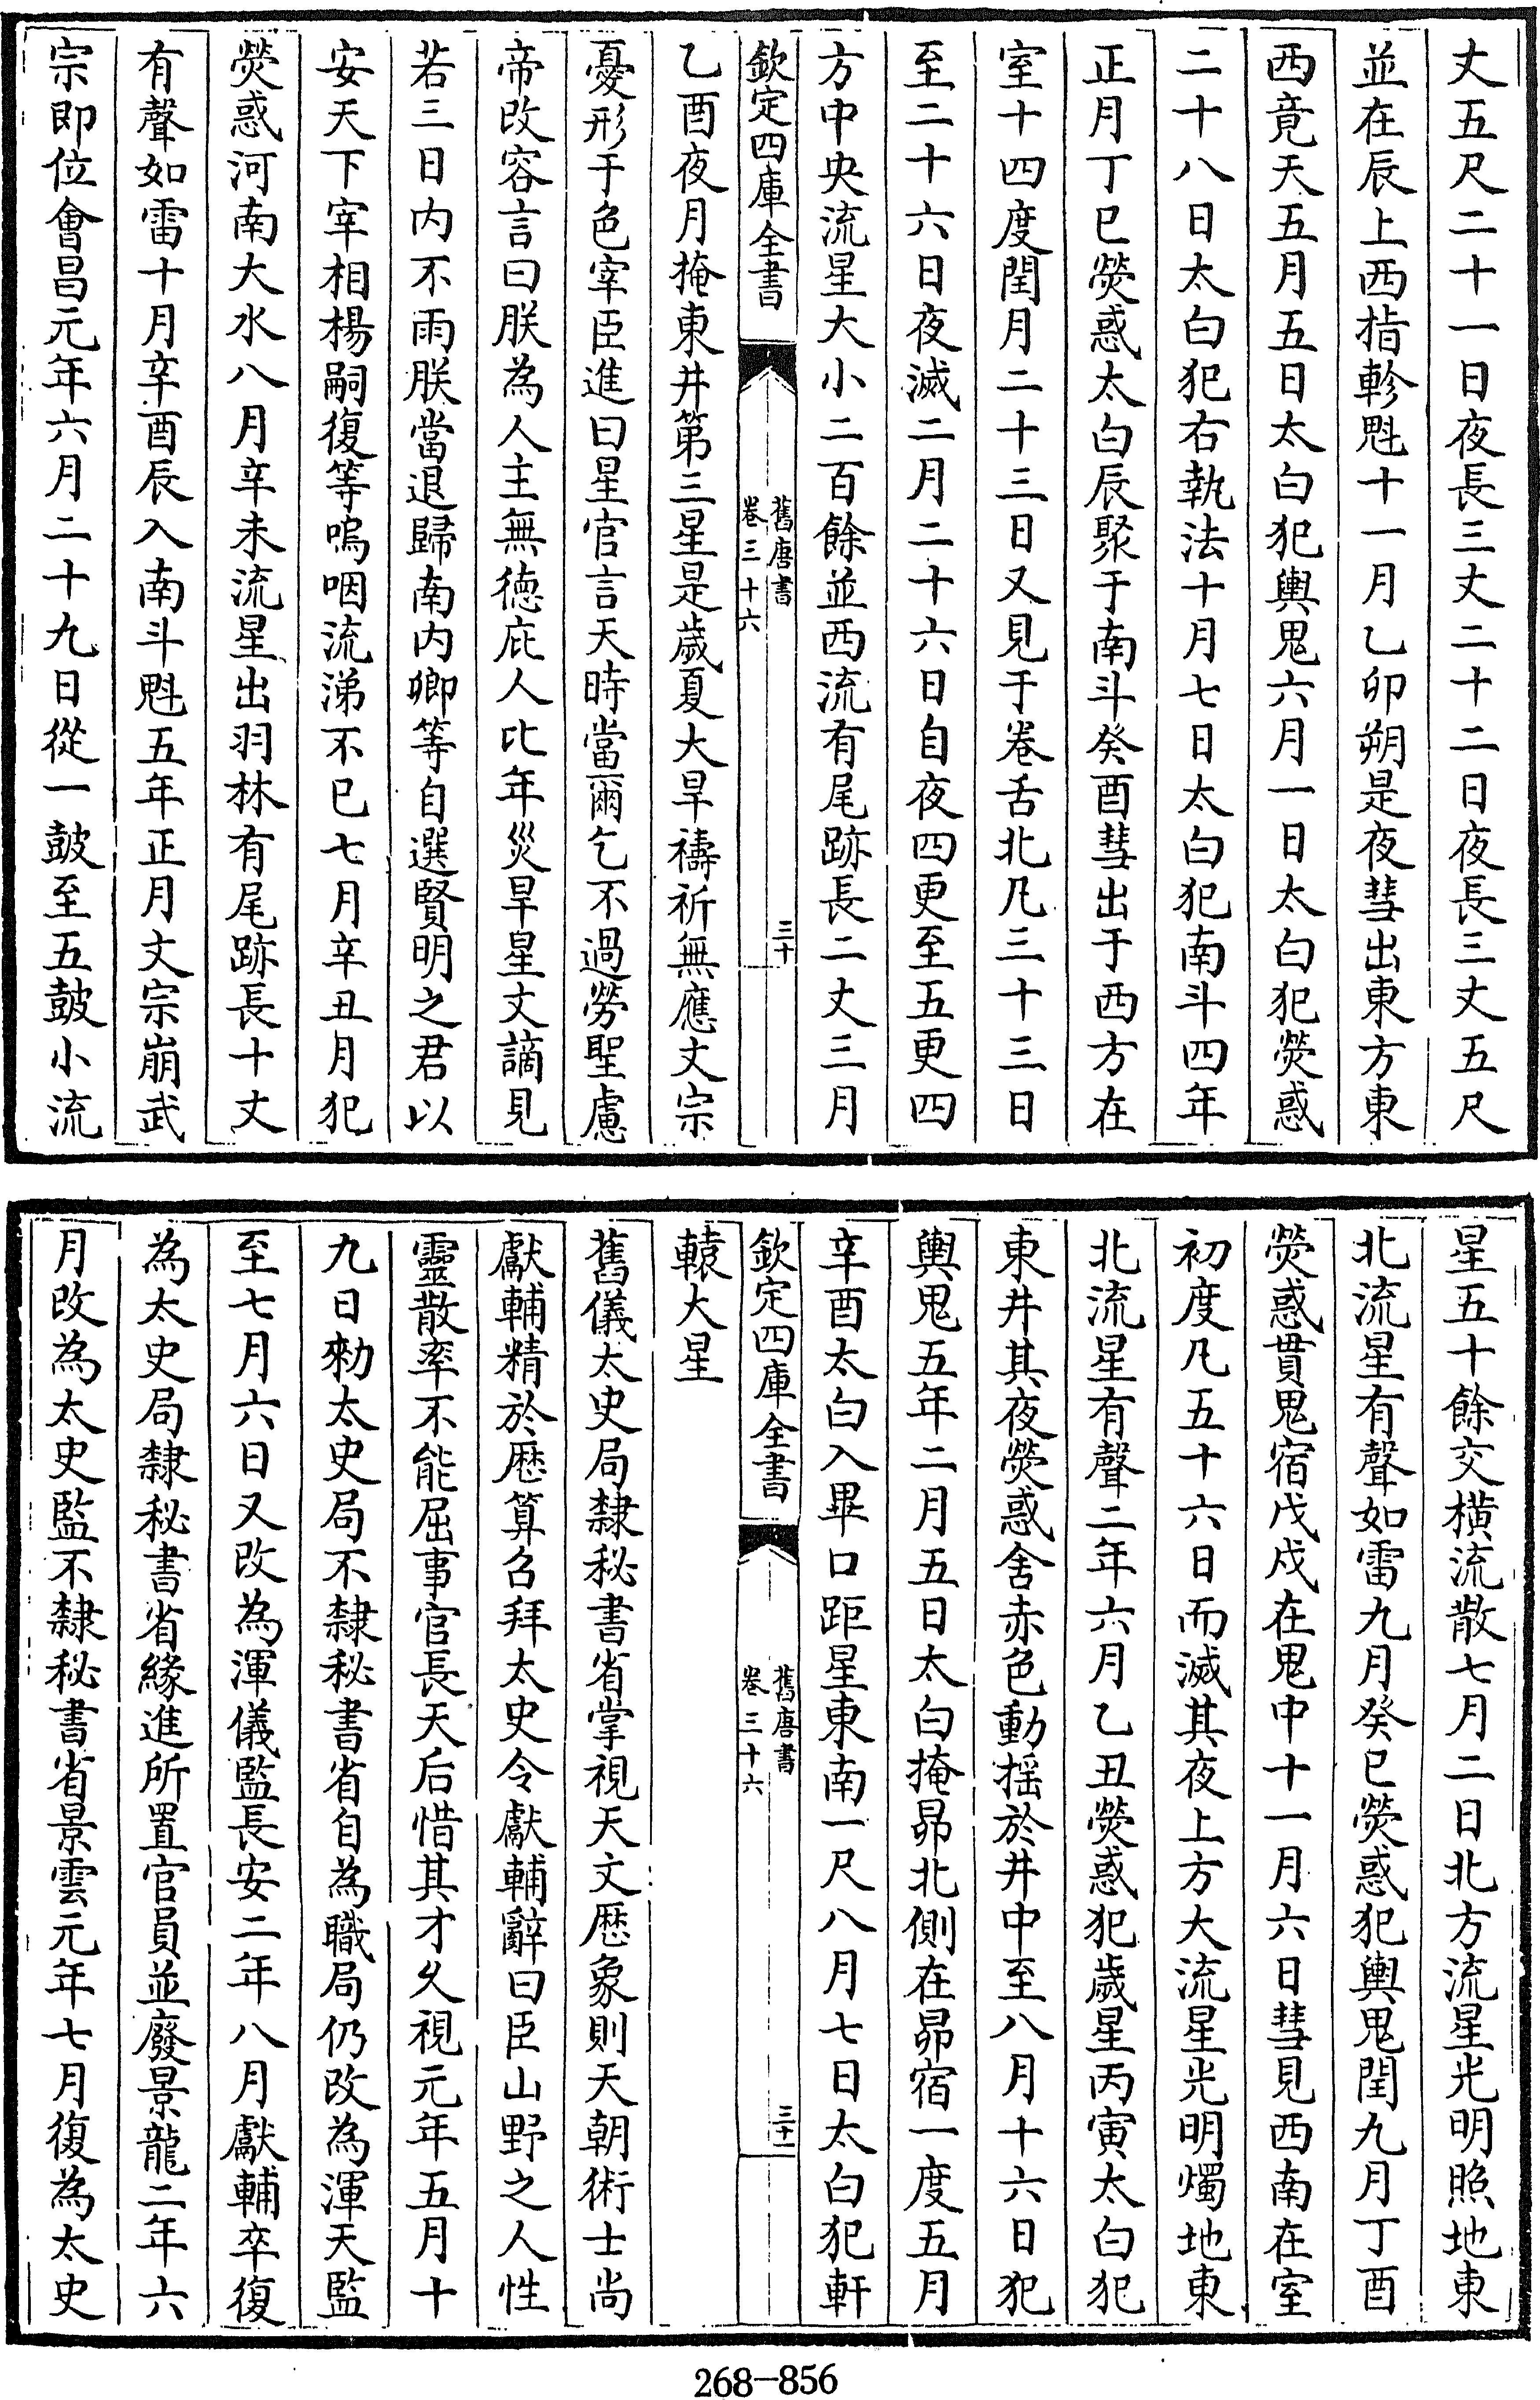 丈五尺二十一日夜長三丈二十二日夜長三丈五尺
並在辰上西指軫魁十一月乙卯朔是夜彗出東方東
西竟天五月五日太白犯輿鬼六月一日太白犯熒惑
二十八日太白犯右執法十月七日太白犯南斗四年
正月丁巳熒惑太白辰聚于南斗癸酉彗出于西方在
室十四度閏月二十三日又見于卷舌北凡三十三日
至二十六日夜滅二月二十六日自夜四更至五更四
方中央流星大小二百餘並西流有尾跡長二丈三月
欽定四庫全書
舊唐書
卷三十六
三十
乙酉夜月掩東井第三星是歲夏大旱禱祈無應文宗
憂形于色宰臣進曰星官言天時當爾乞不過勞聖慮
帝改容言曰朕為人主無德庇人比年災旱星文謫見
若三日内不雨朕當退歸南内卿等自選賢明之君以
安天下宰相楊嗣復等嗚咽流涕不已七月辛丑月犯
熒惑河南大水八月辛未流星出羽林有尾跡長十丈
有聲如雷十月辛酉辰入南斗魁五年正月文宗崩武
宗即位會昌元年六月二十九日從一鼓至五鼓小流
星五十餘交橫流散七月二日北方流星光明照地東
北流星有聲如雷九月癸巳熒惑犯輿鬼閏九月丁酉
熒惑貫鬼宿戊戍在鬼中十一月六日彗見西南在室
初度凡五十六日而滅其夜上方大流星光明燭地東
北流星有聲二年六月乙丑熒惑犯歲星丙寅太白犯
東井其夜熒惑舍赤色動摇於井中至八月十六日犯
輿鬼五年二月五日太白掩昴北側在昴宿一度五月
辛酉太白入畢口距星東南一尺八月七日太白犯軒
欽定四庫全書
舊唐書
卷三十六
三十一
轅大星
舊儀太史局隸秘書省掌視天文歷象則天朝術士尚
獻輔精於歷算召拜太史令獻輔辭曰臣山野之人性
靈散率不能屈事官長天后惜其才久視元年五月十
九日勅太史局不隸秘書省自為職局仍改為渾天監
至七月六日又改為渾儀監長安二年八月獻輔卒復
為太史局隸秘書省緣進所置官員並廢景龍二年六
月改為太史監不隸秘書省景雲元年七月復為太史
268-856